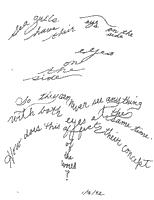 Sea gulls
have their eyes on the
side
eyes
on
the
side
So they can never see anything
with both eyes at the same time.
How does this affect their concept
of
the
world
?